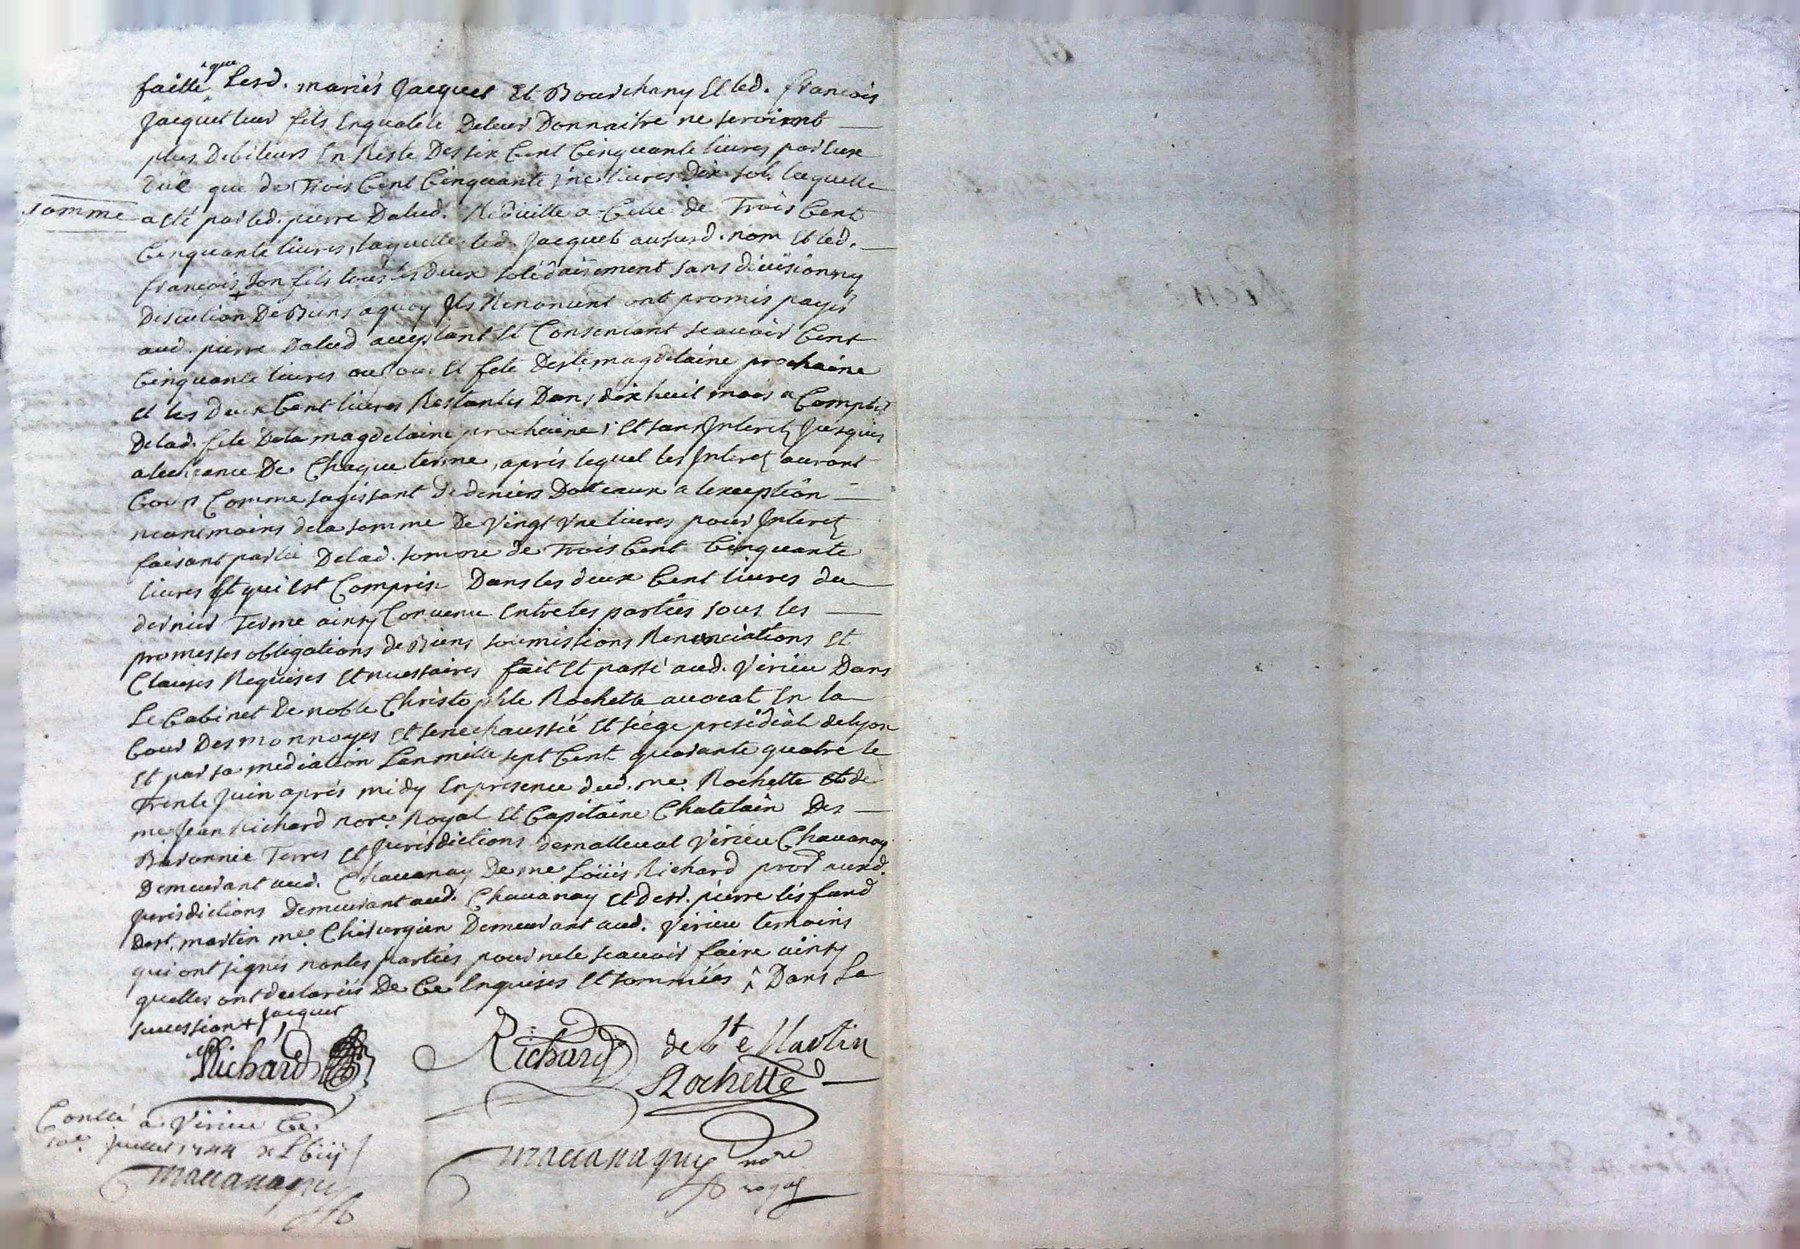 faille ^que Lesd. mariés Jacquet Et Bourchany Et led. françois
Jacquet leur fils En qualité De leur Donnaitre ne seroient
plus Debiteurs En Reste Des six Cent Cinquante livres par eux
que de Trois Cent Cinquante Une livres Dix sols laquelle
somme a eté par led. pierre Dalud. Reduitte a Celle de Trois Cent
Cinquante livres, laquelle led. Jacquet aususd. nom Et led.
françois son fils tous les deux solidairement sans division ny
Discution + De Biens a quoy Ils Renoncent ont promis payer
aud. pierre Dalud acceptant Et Consentant scauoir Cent
Cinquante livres au jour Et fete De ste. magdelaine prochaine
Et les Deux Cent livres Restantes Dans dix huit mois a Compter
De lad. fete De la magdelaine prochaine, Et sans Interetz Jusques
a lecheance De Chaque terme, apres lequel les Interetz auront
Cours Comme sagissant De deniers Dotteaux a lexception
neantmoins de la somme De Vingt Une livres pour Interetz
faisant partie De lad. somme de Trois Cent Cinquante
livres Et qui Est Comprise Dans les deux Cent livres du
dernier Terme ainsy Convenu Entre les parties sous les
promesses obligations de Biens soumissions Renonciations Et
Clauses Requises Et necessaires fait Et passé aud. Virieu Dans
Le Cabinet De noble Christophle Rochette auocat En la
Cour Des monnoyes Et senechaussée Et siege presidial de Lyon
Et par sa mediation Lan mille sept Cent quarante quatre le
Trente Juin aprés midy En presence dud. me. Rochette Et de
me Jean Richard nore. Royal Et Capitaine Chatelain Des
Baronnie Terres Et Jurisdictions de malleual Virieu Chauanay
Demeurant aud. Chauanay De me Loüis Richard procr. ausd.
Jurisdictions Demeurant aud. Chauanay Et de sr. pierre
De st. martin me. Chirurgien Demeurant aud. Virieu temoins
qui ont signés non les parties pour ne le scauoir faire ainsy
quelles ont declarées De Ce Enquises Et sommées ^ Dans La
succession + Jacquet
Richard Richard de St e Martin
Rochette
Conllé a Virieu Ce
10e. Juillet 1744
nore
royal